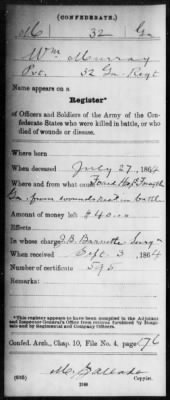 (CONFEDERATE.)
M 32 Ga
Wm Murray
Pvt. 32 Ga. Regt
Name appears on a
Register*
of Officers and Soldiers of the Army of the Confederate States who were killed in battle, or who died of wounds or disease.
Where born
When deceased July 27, 1864
Where and from what cause Ford Hosp. Forsyth
Ga. from wounds rec'd in battle
Amount of money left $40.00
Effects
In whose charge Surg
When received Sept 3, 1864
Number of certificate 595
Remarks:
*This register appears to have been compiled in the Adjutant and Inspector General's Office from returns furnished by Hospitals and by Regimental and Company Officers.
Confed. Arch., Chap. 10, File No. 4, page 576
(635) Copyist.